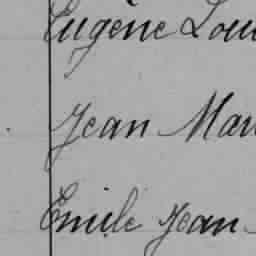 Eugène Lou
Jean Mar
Emile Jean